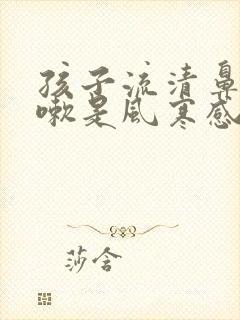 孩子流清鼻
嗽是风寒感
莎含